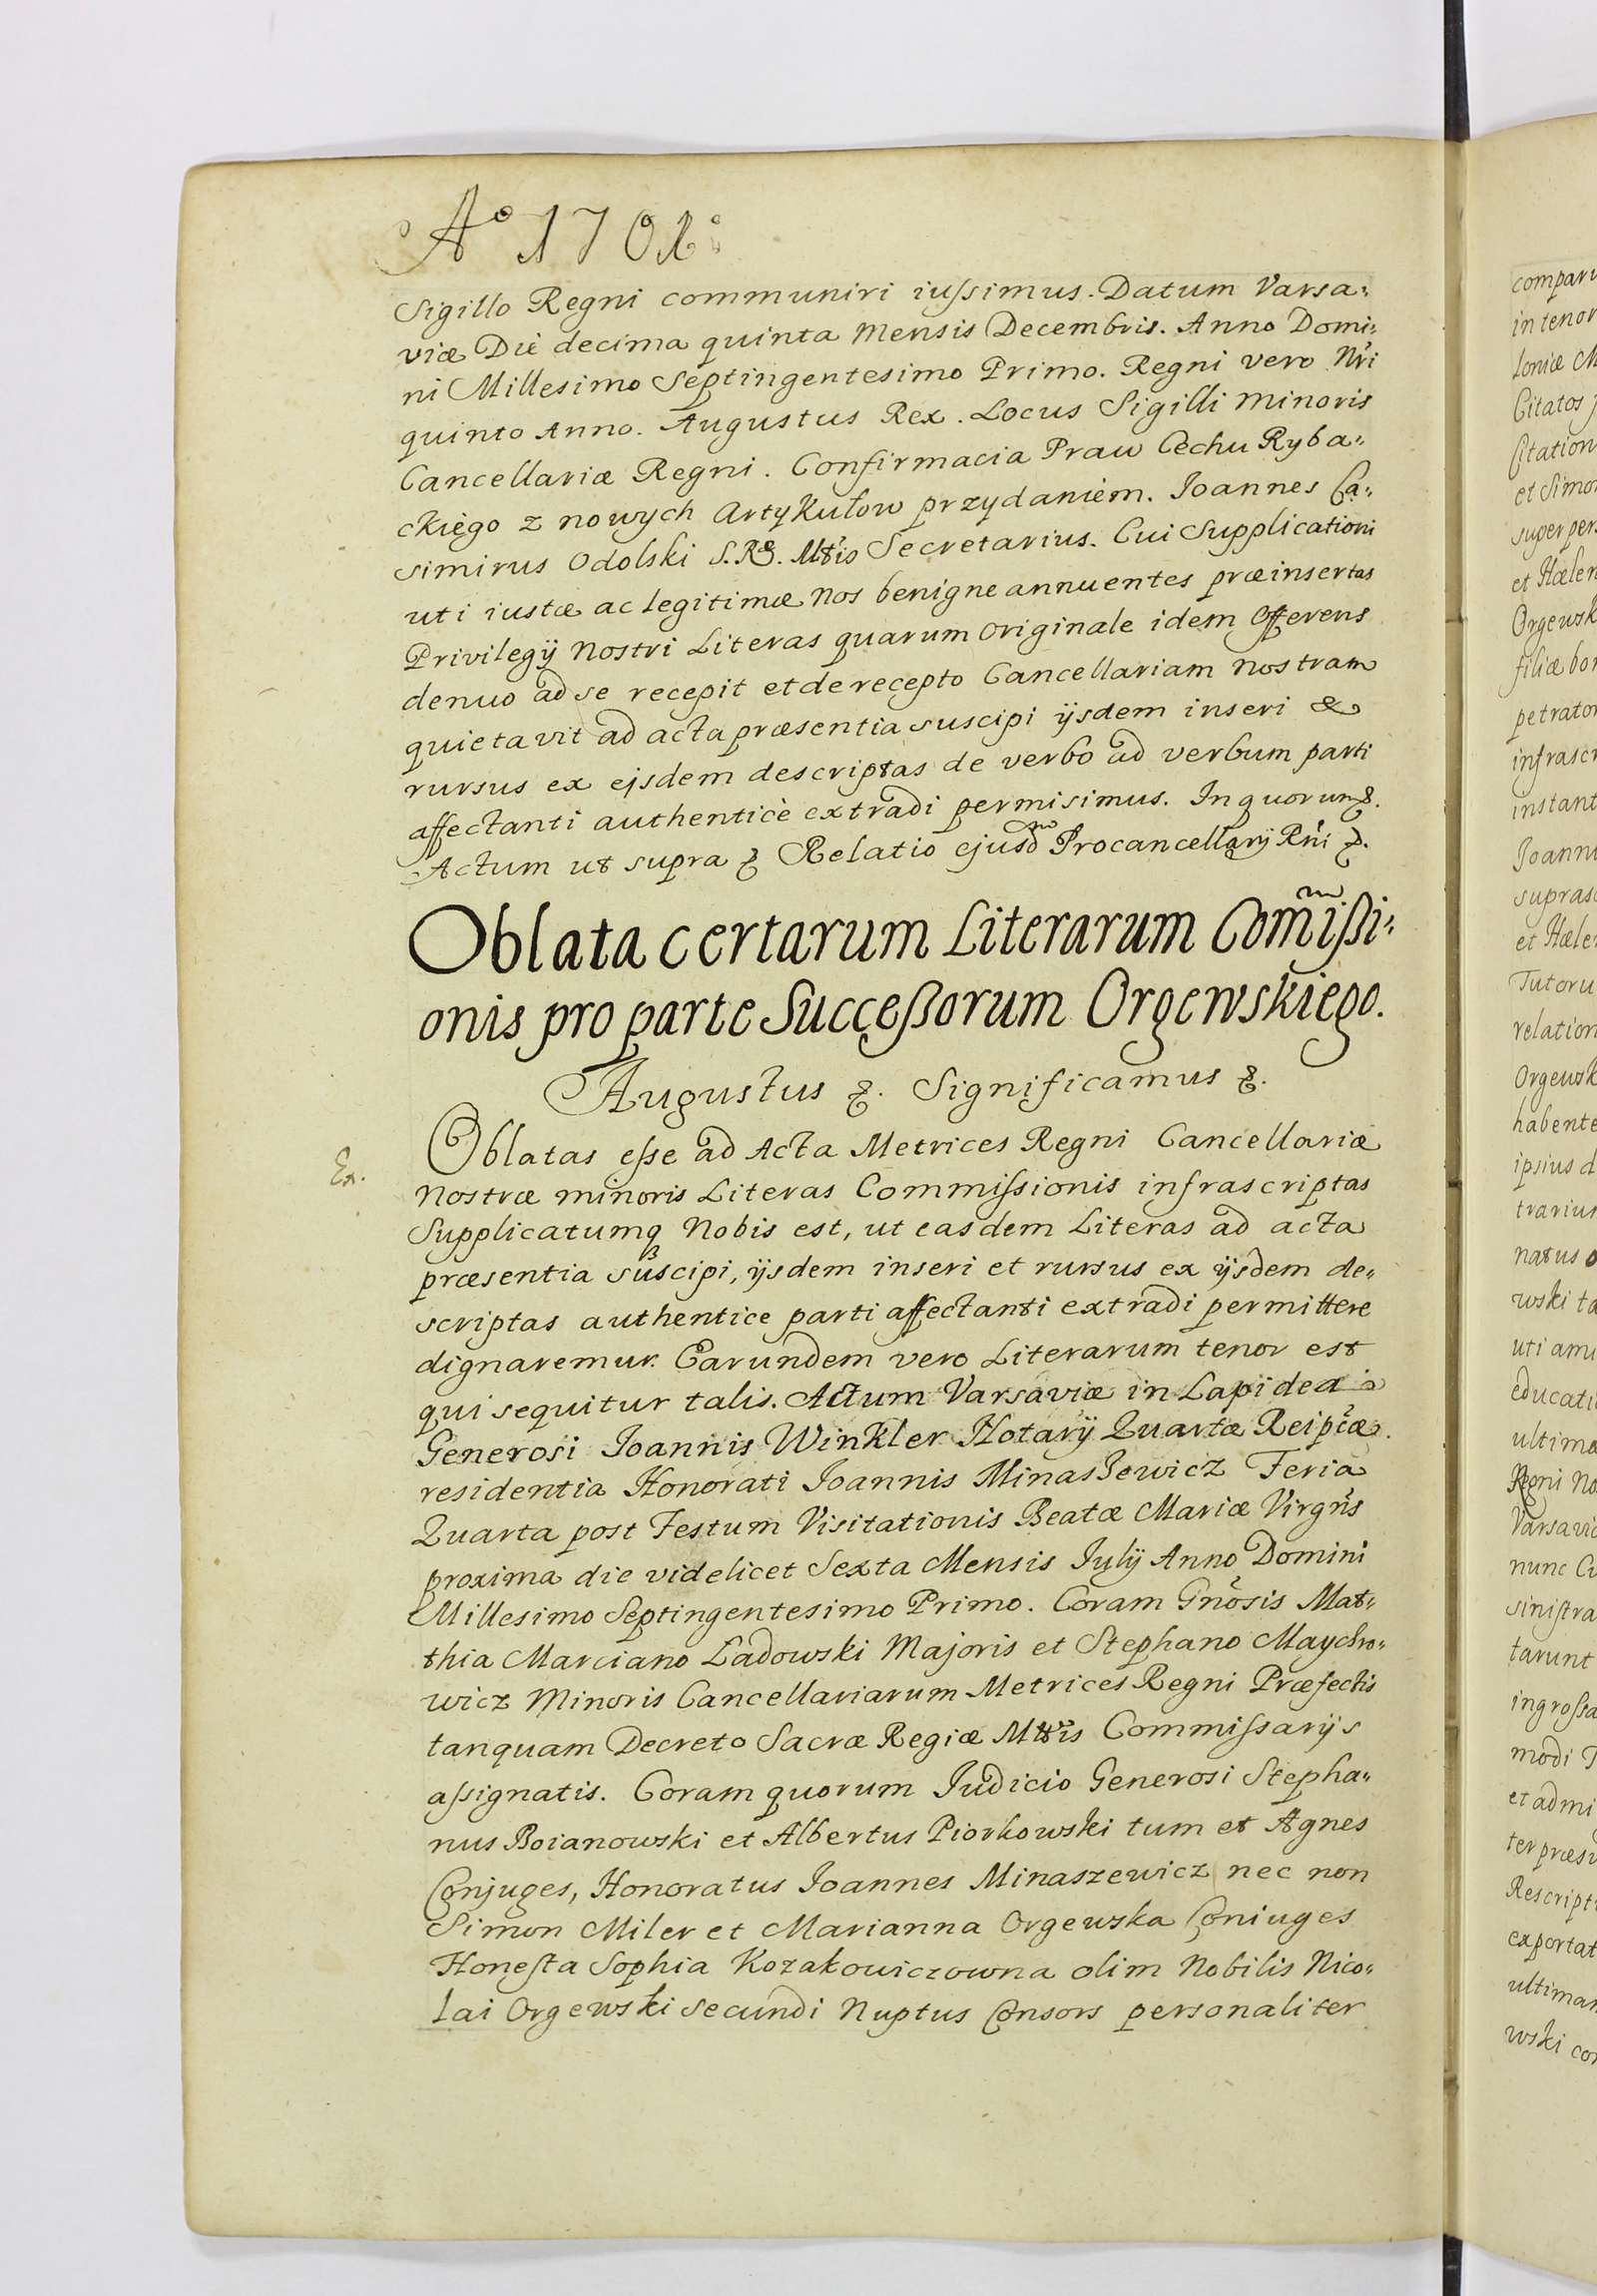 Aº 1701º
Sigillo Regni communiri iussimus. Datum Varsa:
viæ Die decima quinta Mensis Decembris. Anno Domi:
ni Millesimo Septingentesimo Primo. Regni vero Nri
quinto Anno. Augustus Rex. Locus Sigilli Minoris
Cancellariæ Regni. Confirmacia Praw Cechu Ryba:
ckiego z nowych Artykułow przydaniem. Joannes Ca:
simirus Odolski S. R. Mtis Secretarius. Cui Supplicationi
uti iustæ ac legitimæ Nos benigne annuentes præinsertas
Privilegij Nostri Literas quarum originale idem offerens
denuo ad se recepit et de recepto Cancellariam nostram
quietavit ad acta præsentia suscipi ijsdem inseri &
rursus ex ejsdem descriptas de verbo ad verbum parti
affectanti authenticè extradi permisimus. In quorum &.
Actum ut supra & Relatio ejusd Procancellarij Rni &.
Oblata certarum Literarum Comissi:
onis pro parte Successorum Orgewskiego.
Augustus &. Significamus &.
Ex.
Oblatas esse ad Acta Metrices Regni Cancellariæ
Nostræ minoris Literas Commissionis infrascriptas
Supplicatumq Nobis est, ut easdem Literas ad acta
præsentia suscipi, ijsdem inseri et rursus ex ijsdem de:
scriptas authentice parti affectanti extradi permittere
dignaremur. Earundem vero Literarum tenor est
qui sequitur talis. Actum Varsaviæ in Lapidea
Generosi Joannis Winkler Notarij Quartæ Reiptæ.
residentia Honorati Joannis Minasiewicz Feria
Quarta post Festum Visitationis Beatæ Mariæ Virgnis
proxima die videlicet Sexta Mensis Julij Anno Domini
Millesimo Septingentesimo Primo. Coram Gnosis Mat:
thia Marciano Ladowski Majoris et Stephano Maychro:
wicz Minoris Cancellariarum Metrices Regni Præfectis
tanquam Decreto Sacræ Regiæ Mttis Commissarijs
assignatis. Coram quorum Judicio Generosi Stepha:
nus Boianowski et Albertus Piorkowski tum et Agnes
Conjuges, Honoratus Joannes Minaszewicz nec non
Simon Miler et Marianna Orgewska Coniuges
Honesta Sophia Kozakowiczowna olim Nobilis Nico:
lai Orgewski secundi Nuptus Consors personaliter